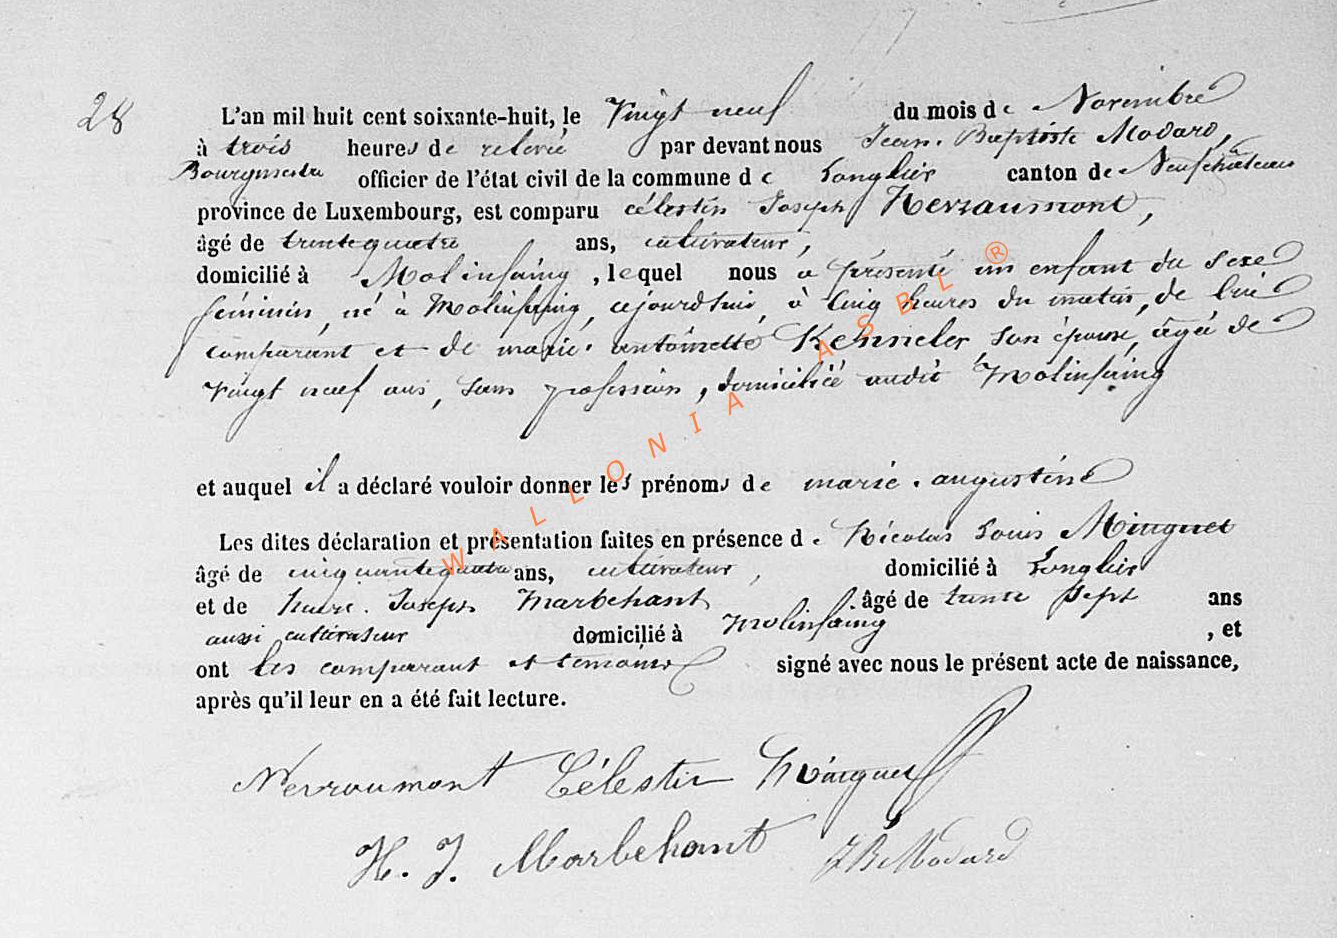 28
L'an mil huit cent soixante-huit, le Vingt neuf du mois de Novembre
à trois heures de relevée par devant nous Jean-Baptiste Modard,
Bourgmestre officier de l'état civil de la commune de Longlier canton de Neufchâteau
province de Luxembourg, est comparu célestin Joseph Nerraumont,
âgé de trentequatre ans, cultivateur,
domicilié à Molinfaing, lequel nous a présenté un enfant du sexe
féminin, né à Molinfaing, cejourd'hui, à cinq heures du matin, de lui
comparant et de marie-antoinette son épouse, âgée de
vingt neuf ans, sans profession, domiciliée audit Molinfaing
et auquel il a déclaré vouloir donner les prénoms de marie-augustine
Les dites déclaration et présentation faites en présence de Nicolas Louis Minguet
âgé de cinquantequatre ans, cultivateur, domicilié à Longlier
et de henri-Joseph Marbehant âgé de trente sept ans
aussi cultivateur domicilié à Molinfaing, et
ont les comparant et témoins signé avec nous le présent acte de naissance,
après qu'il leur en a été fait lecture.
Nerraumont Célestin Minguet
H. J. Marbehant JB Modard
WALLONIA ASBL ®